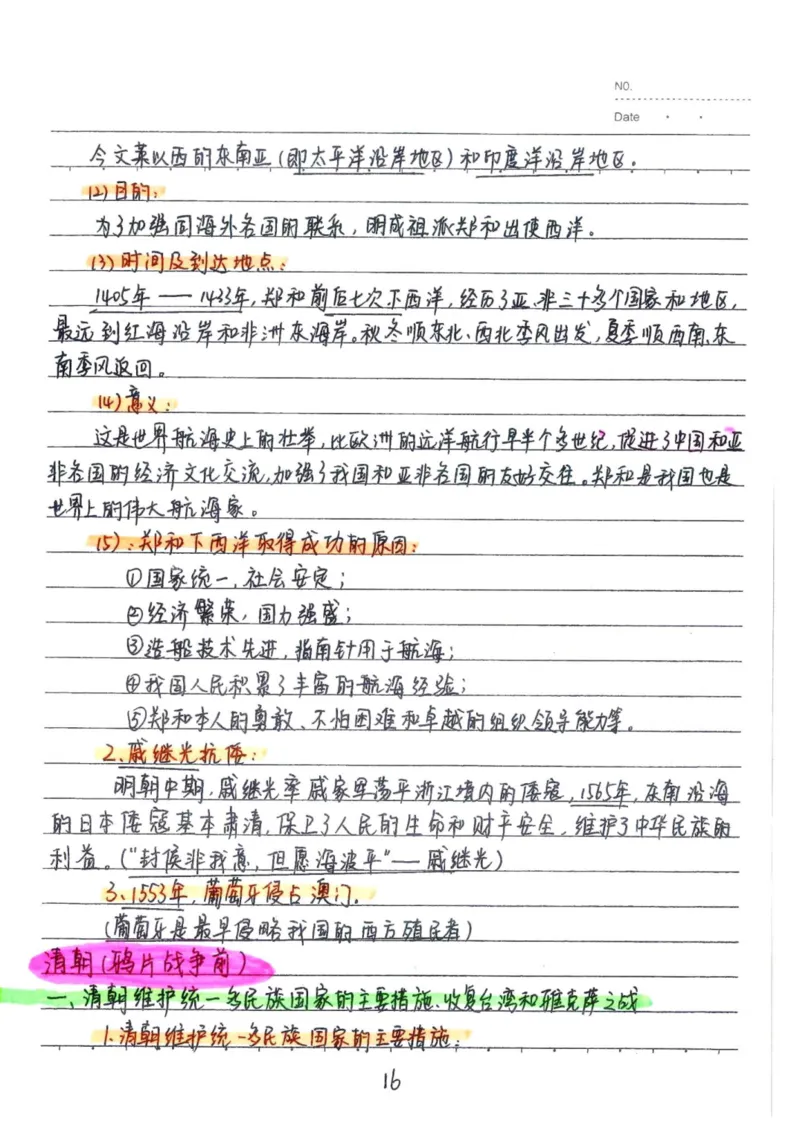 NO.
Date
今文莱以西的东南亚(即太平洋沿岸地区)和印度洋沿岸地区。
(2)目的:
为了加强同海外各国的联系,明成祖派郑和出使西洋。
(3)时间及到达地点:
1405年——1433年,郑和前后七次下西洋,经历了亚、非三十多个国家和地区,
最远到红海沿岸和非洲东海岸。秋冬顺东北、西北季风出发,夏季顺西南、东
南季风返回。
(4)意义:
这是世界航海史上的壮举,比欧洲的远洋航行早半个多世纪,促进了中国和亚
非各国的经济文化交流,加强了我国和亚非各国的友好交往。郑和是我国也是
世界上的伟大航海家。
(5):郑和下西洋取得成功的原因:
①国家统一,社会安定;
②经济繁荣,国力强盛;
③造船技术先进,指南针用于航海;
④我国人民积累了丰富的航海经验;
⑤郑和本人的勇敢、不怕困难和卓越的组织领导能力等。
2.戚继光抗倭:
明朝中期,戚继光率戚家军荡平浙江境内的倭寇,1565年,东南沿海
的日本倭寇基本肃清,保卫了人民的生命和财产安全,维护了中华民族的
利益。("封侯非我意,但愿海波平"——戚继光)
3、1553年,葡萄牙侵占澳门。
(葡萄牙是最早侵略我国的西方殖民者)
清朝(鸦片战争前)
一、清朝维护统一多民族国家的主要措施、收复台湾和雅克萨之战
1.清朝维护统一多民族国家的主要措施:
16